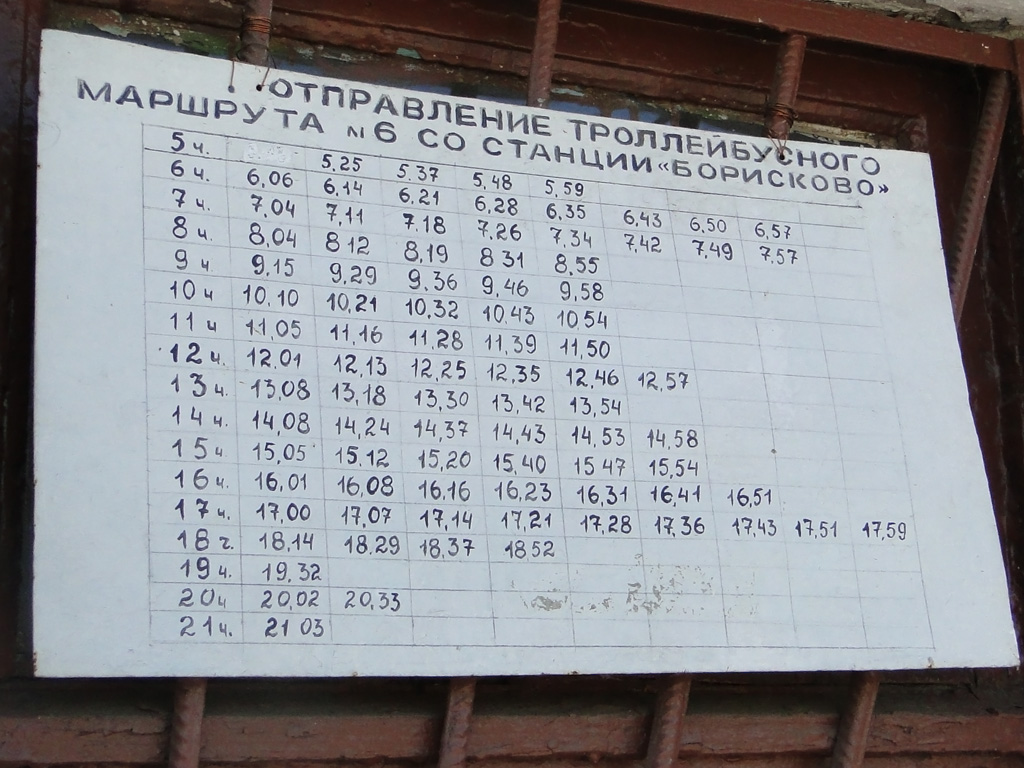 ОТПРАВЛЕНИЕ ТРОЛЛЕЙБУСНОГО
МАРШРУТА №6 СО СТАНЦИИ «БОРИСКОВО»
5 ч. 5.25 5.37 5.48 5.59
6 ч. 6.06 6.14 6.21 6.28 6.35 6.43 6.50 6.57
7 ч. 7.04 7.11 7.18 7.26 7.34 7.42 7.49 7.57
8 ч. 8.04 8 12 8.19 8 31 8.55
9 ч 9.15 9.29 9.36 9.46 9.58
10 ч 10.10 10.21 10.32 10.43 10.54
11 ч 11.05 11.16 11.28 11.39 11.50
12 ч. 12.01 12.13 12.25 12.35 12.46 12.57
13 ч. 13.08 13.18 13.30 13.42 13.54
14 ч. 14.08 14.24 14.37 14.43 14.53 14.58
15 ч. 15.05 15.12 15.20 15.40 15 47 15.54
16 ч. 16.01 16.08 16.16 16.23 16.31 16.41 16.51
17 ч. 17.00 17.07 17.14 17.21 17.28 17.36 17.43 17.51 17.59
18 г. 18.14 18.29 18.37 18 52
19 ч. 19.32
20 ч 20.02 20.33
21 ч. 21 03